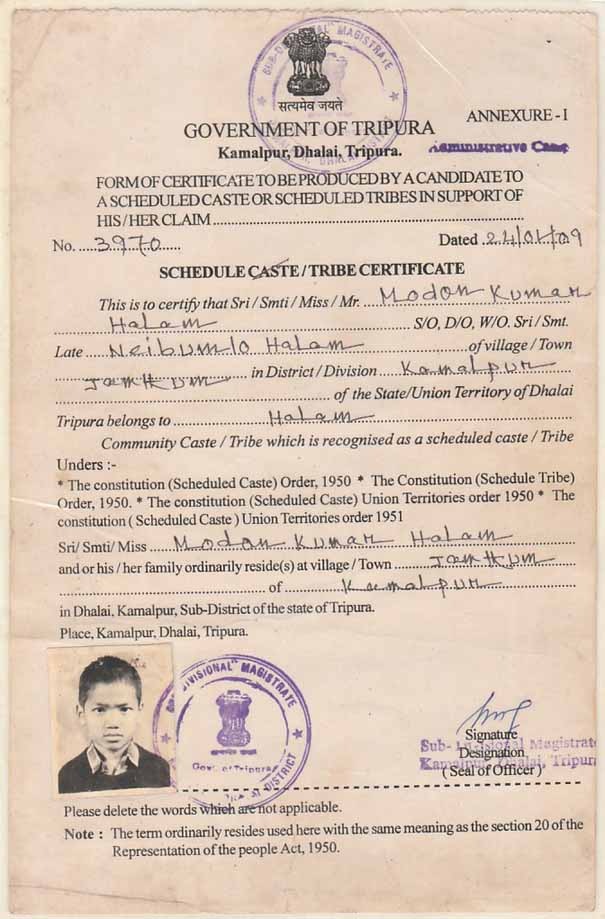 SUB-DIVISIONAL MAGISTRATE
सत्यमेव जयते
DHALAI DISTRICT
ANNEXURE - I
GOVERNMENT OF TRIPURA
Kamalpur, Dhalai, Tripura.
Administrative Case
FORM OF CERTIFICATE TO BE PRODUCED BY A CANDIDATE TO
A SCHEDULED CASTE OR SCHEDULED TRIBES IN SUPPORT OF
HIS / HER CLAIM
No. 3970 Dated 24/01/09
SCHEDULE CASTE / TRIBE CERTIFICATE
This is to certify that Sri / Smti / Miss / Mr. Modon Kumar
Halam S/O, D/O, W/O. Sri / Smt.
Late Neibumlo Halam of village / Town
Jamthum in District / Division Kamalpur
of the State/Union Territory of Dhalai
Tripura belongs to Halam
Community Caste / Tribe which is recognised as a scheduled caste / Tribe
Unders :-
* The constitution (Scheduled Caste) Order, 1950 * The Constitution (Schedule Tribe)
Order, 1950. * The constitution (Scheduled Caste) Union Territories order 1950 * The
constitution ( Scheduled Caste ) Union Territories order 1951
Sri/ Smti/ Miss Modon Kumar Halam
and or his / her family ordinarily reside(s) at village / Town Jamthum
of Kamalpur
in Dhalai, Kamalpur, Sub-District of the state of Tripura.
Place, Kamalpur, Dhalai, Tripura.
SUB-DIVISIONAL MAGISTRATE
Govt. of Tripura
DHALAI DISTRICT
Signature
Sub-Divisional Magistrate
Designation
Kamalpur, Dhalai, Tripura
( Seal of Officer )
Please delete the words which are not applicable.
Note : The term ordinarily resides used here with the same meaning as the section 20 of the
Representation of the people Act, 1950.